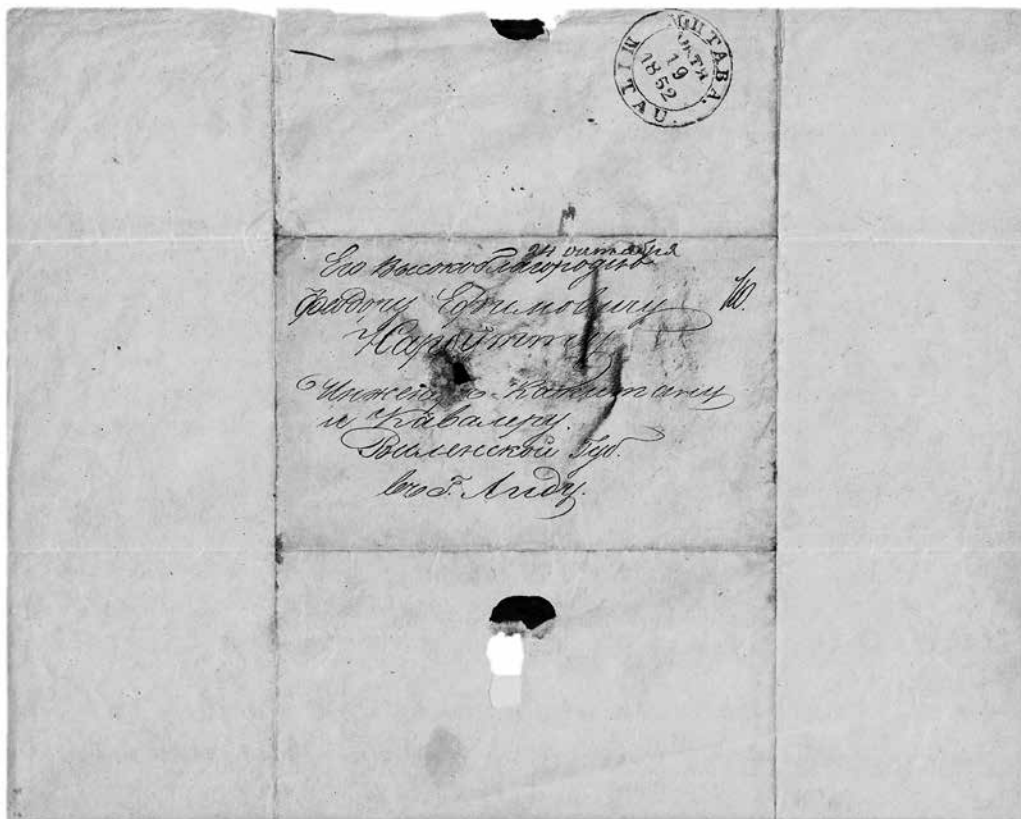 МИТАВА.
ОКТЯ
19
1852
MITAU.
24 октября
Его Высокоблагородію
Ефимовичу
Инженеръ-Капитану
и Кавалеру.
Виленской Губ.
въ Г. Лиду.